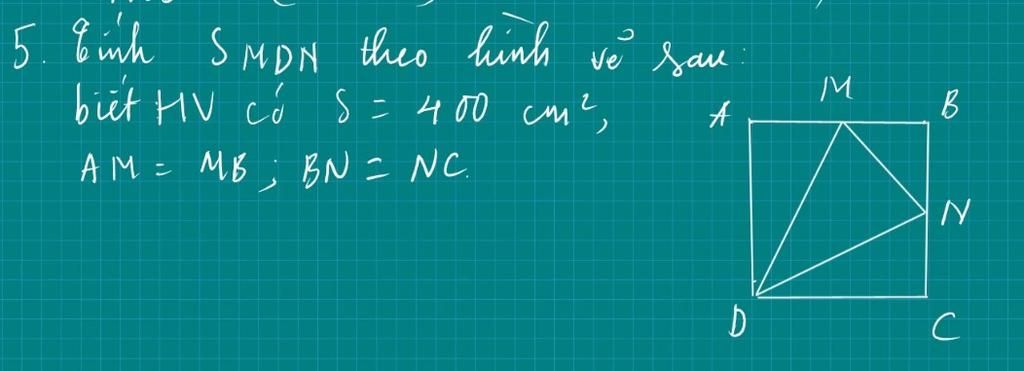 5. Tính SMDN theo hình vẽ sau:
biết HV có S = 400 cm²,
AM = MB; BN = NC.
A M B
N
D C